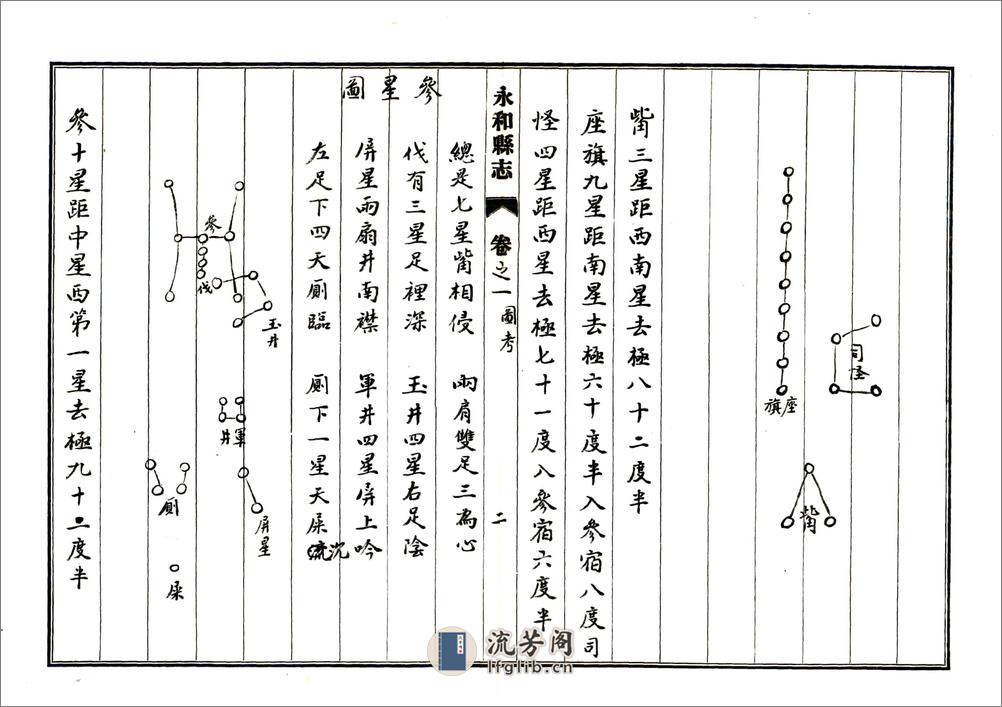 司怪
座旗
觜
觜三星距西南星去極八十二度半
座旗九星距南星去極六十度半入參宿八度司
怪四星距西星去極七十一度入參宿六度半
永和縣志
卷之一圖考
二
參星圖
總是七星觜相侵 兩肩雙足三為心
伐有三星足裡深 玉井四星右足陰
屏星兩扇井南襟 軍井四星屏上吟
左足下四天厠臨 厠下一星天屎沉
參
伐
玉井
軍井
屏星
厠
屎
參十星距中星西第一星去極九十二度半
流芳阁
lfglib.cn